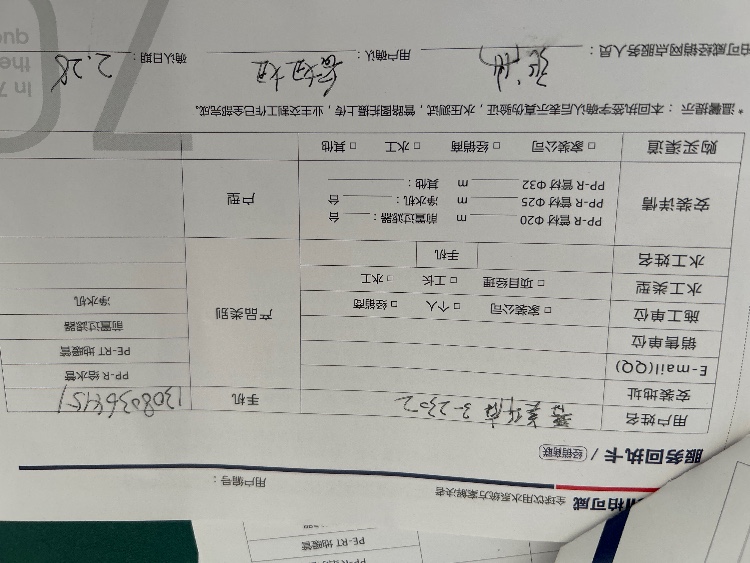 柏可威 全球饮用水系统方案解决者
用户编号：
服务回执卡 / 经销商联
用户姓名 3-2302 手机
安装地址 PP-R 给水管
E-mail(QQ) PE-RT 地暖管
销售单位 前置过滤器
施工单位 □ 家装公司 □ 个人 □ 经销商 产品类别 净水机
水工类型 □ 项目经理 □ 工长 □ 水工
水工姓名 手机
安装详情 PP-R 管材 Φ20 m 前置过滤器： 台 户型
PP-R 管材 Φ25 m 净水机： 台
PP-R 管材 Φ32 m 其他：
购买渠道 □ 家装公司 □ 经销商 □ 水工 □ 其他
*温馨提示：本回执签字确认后表示真伪验证，水压测试，管路图拍摄上传，业主交割工作已全部完成。
柏可威经销网点服务人员： 用户确认： 确认日期： 2.28
In 7
the
quo
PE-RT 地暖管